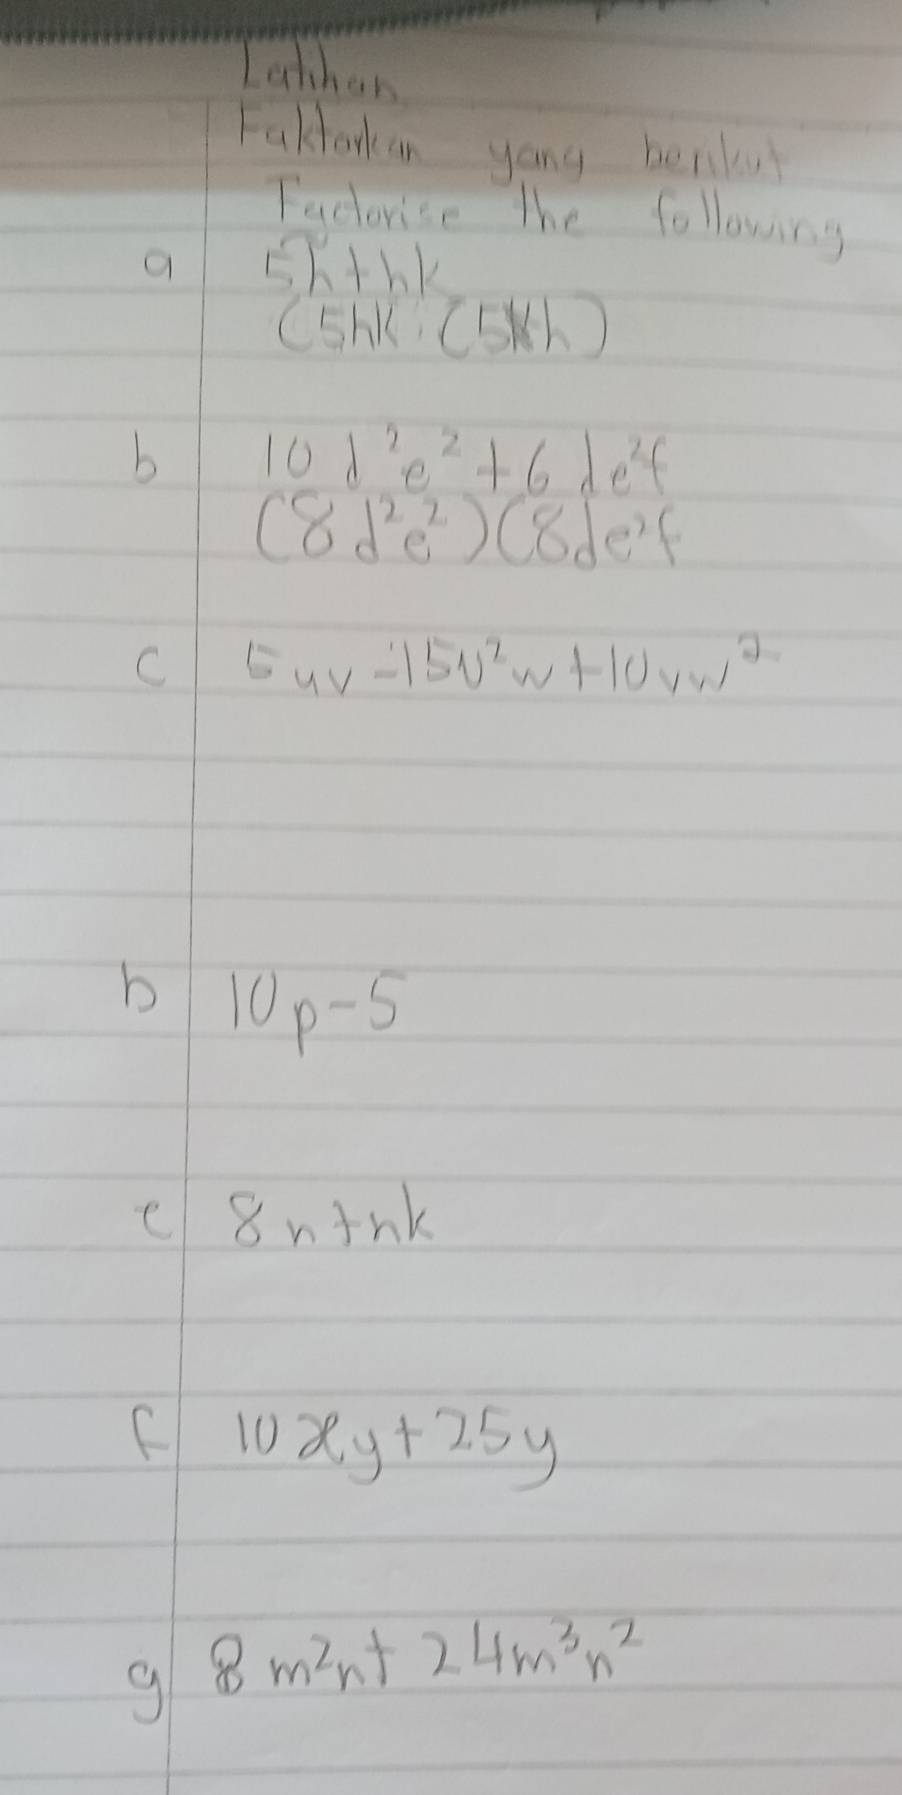 Latihan
Faktorkan yang berikut
Factorise the following
a 5h+hk
(5hk (5kh)
b 10d²e²+6de²f
(8d²e²)(8de²f
c 5uv-15v²w+10vw²
b 10p-5
e 8n+nk
f 10xy+25y
g 8m²n+24m³n²